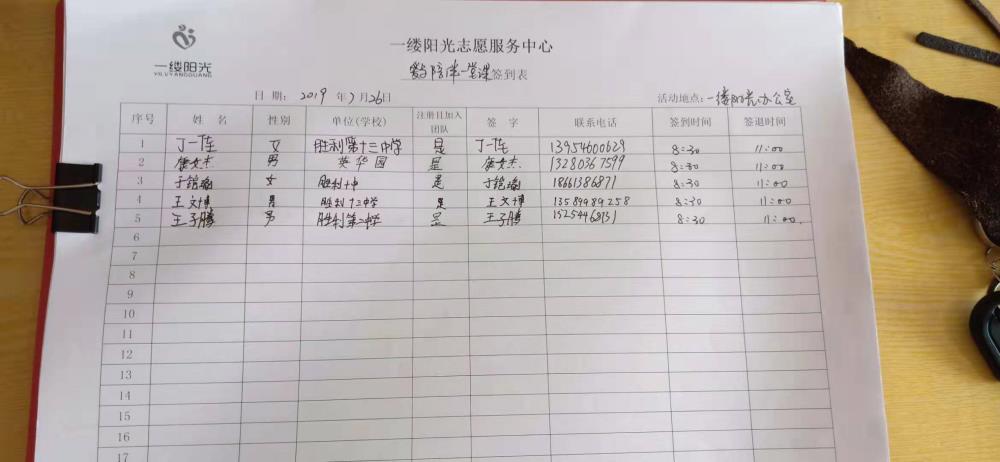 一缕阳光
YILVYANGGUANG
一缕阳光志愿服务中心
陪伴一堂课签到表
日 期： 2019 年 7 月 26日 活动地点：一缕阳光办公室
序号 姓 名 性别 单位(学校) 注册且加入团队 签 字 联系电话 签到时间 签退时间
1 丁一 女 胜利第十三中学 是 丁一 13954600629 8:30 11:00
2 文杰 男 英华园 是 文杰 13280367599 8:30 11:00
3 于铠 女 胜利十中 是 于铠 18661386871 8:30 11:00
4 王文博 男 胜利十二中学 是 王文博 13589989258 8:30 11:00
5 王子腾 男 胜利第二中学 是 王子腾 8:30 11:00
6
7
8
9
10
11
12
13
14
15
16
17